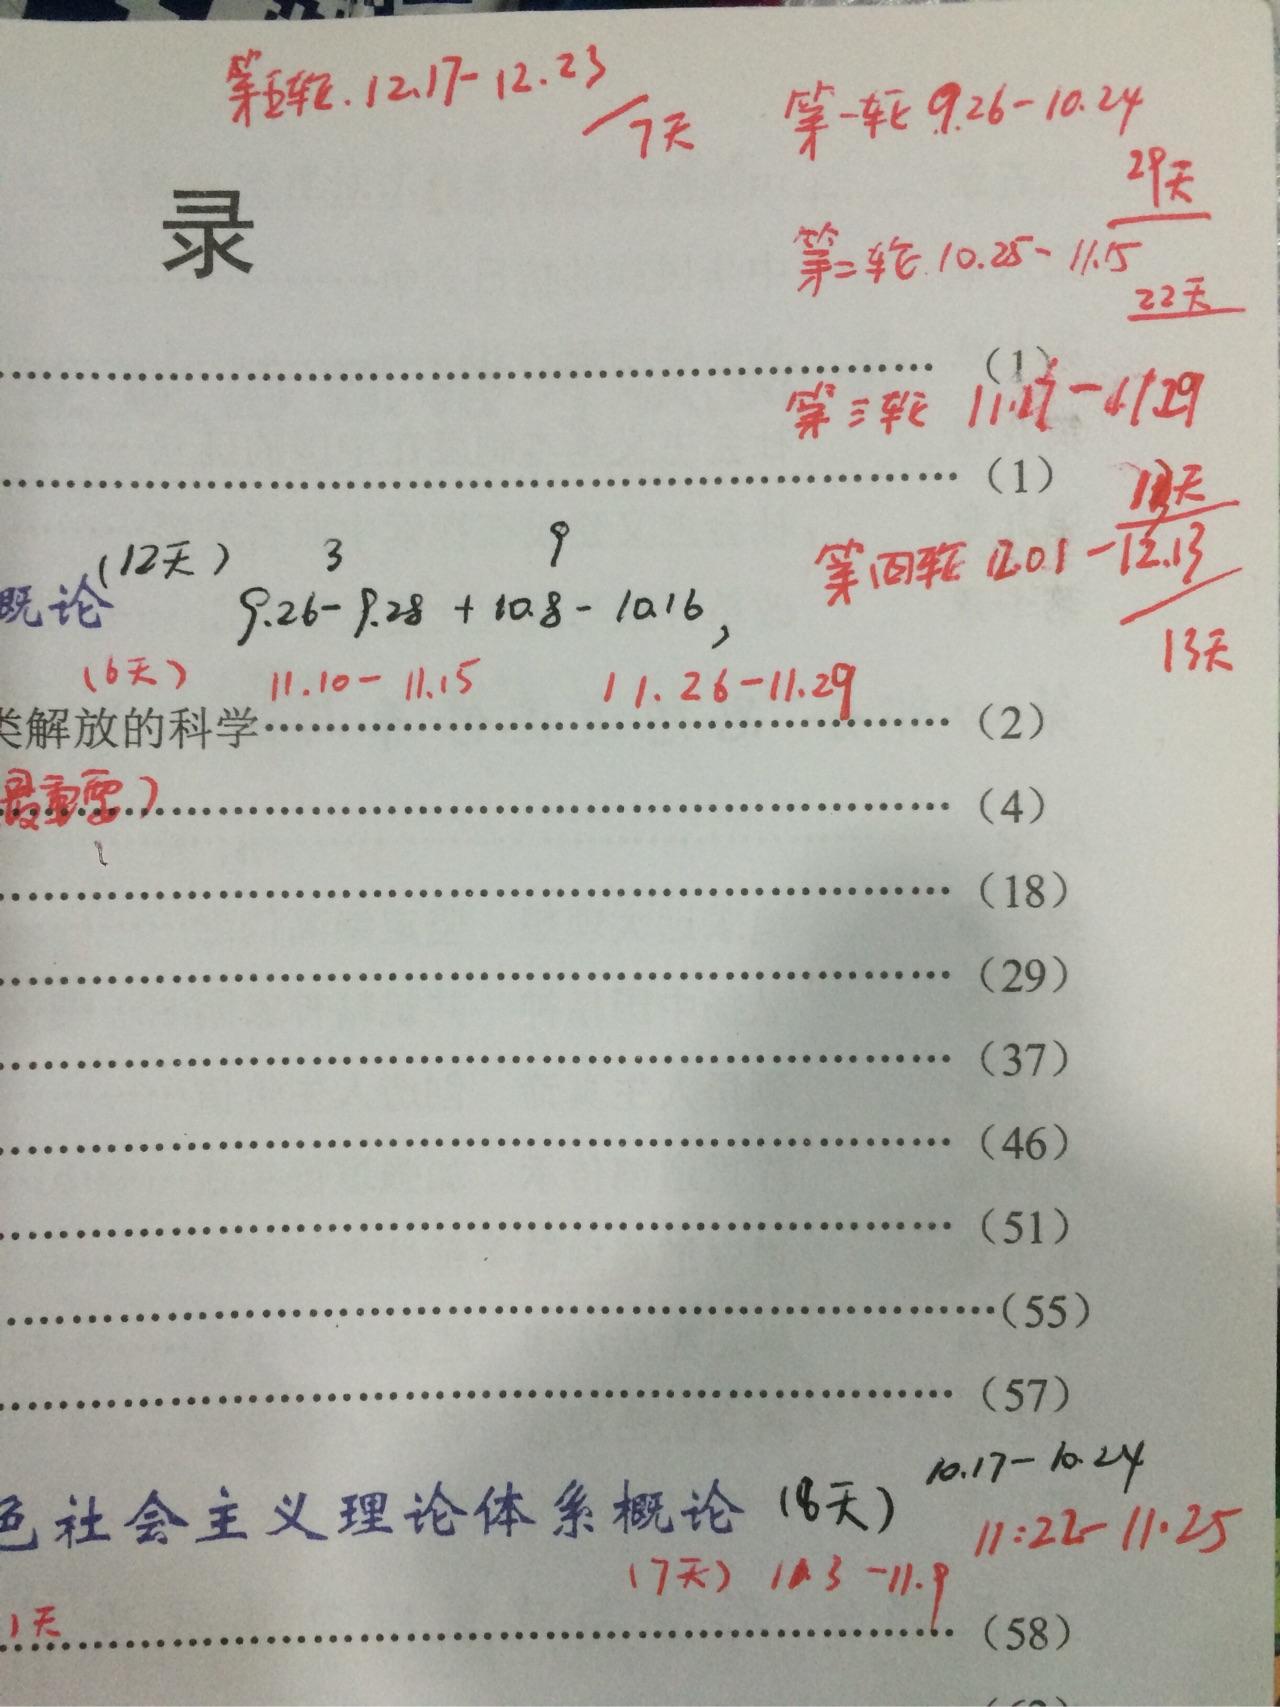 第五轮. 12.17-12.23
7天
第一轮 9.26-10.24
29天
录
第二轮 10.25-11.15
22天
(1)
第三轮 11.17-11.29
(1)
13天
第四轮 12.01-12.13
13天
(12天) 3 9
概论 9.26-9.28 + 10.8-10.16,
(6天) 11.10-11.15 11.26-11.29
类解放的科学 (2)
最重要) (4)
(18)
(29)
(37)
(46)
(51)
(55)
(57)
色社会主义理论体系概论 (8天) 10.17-10.24
11:22-11.25
(7天) 11.3-11.9
1天
(58)